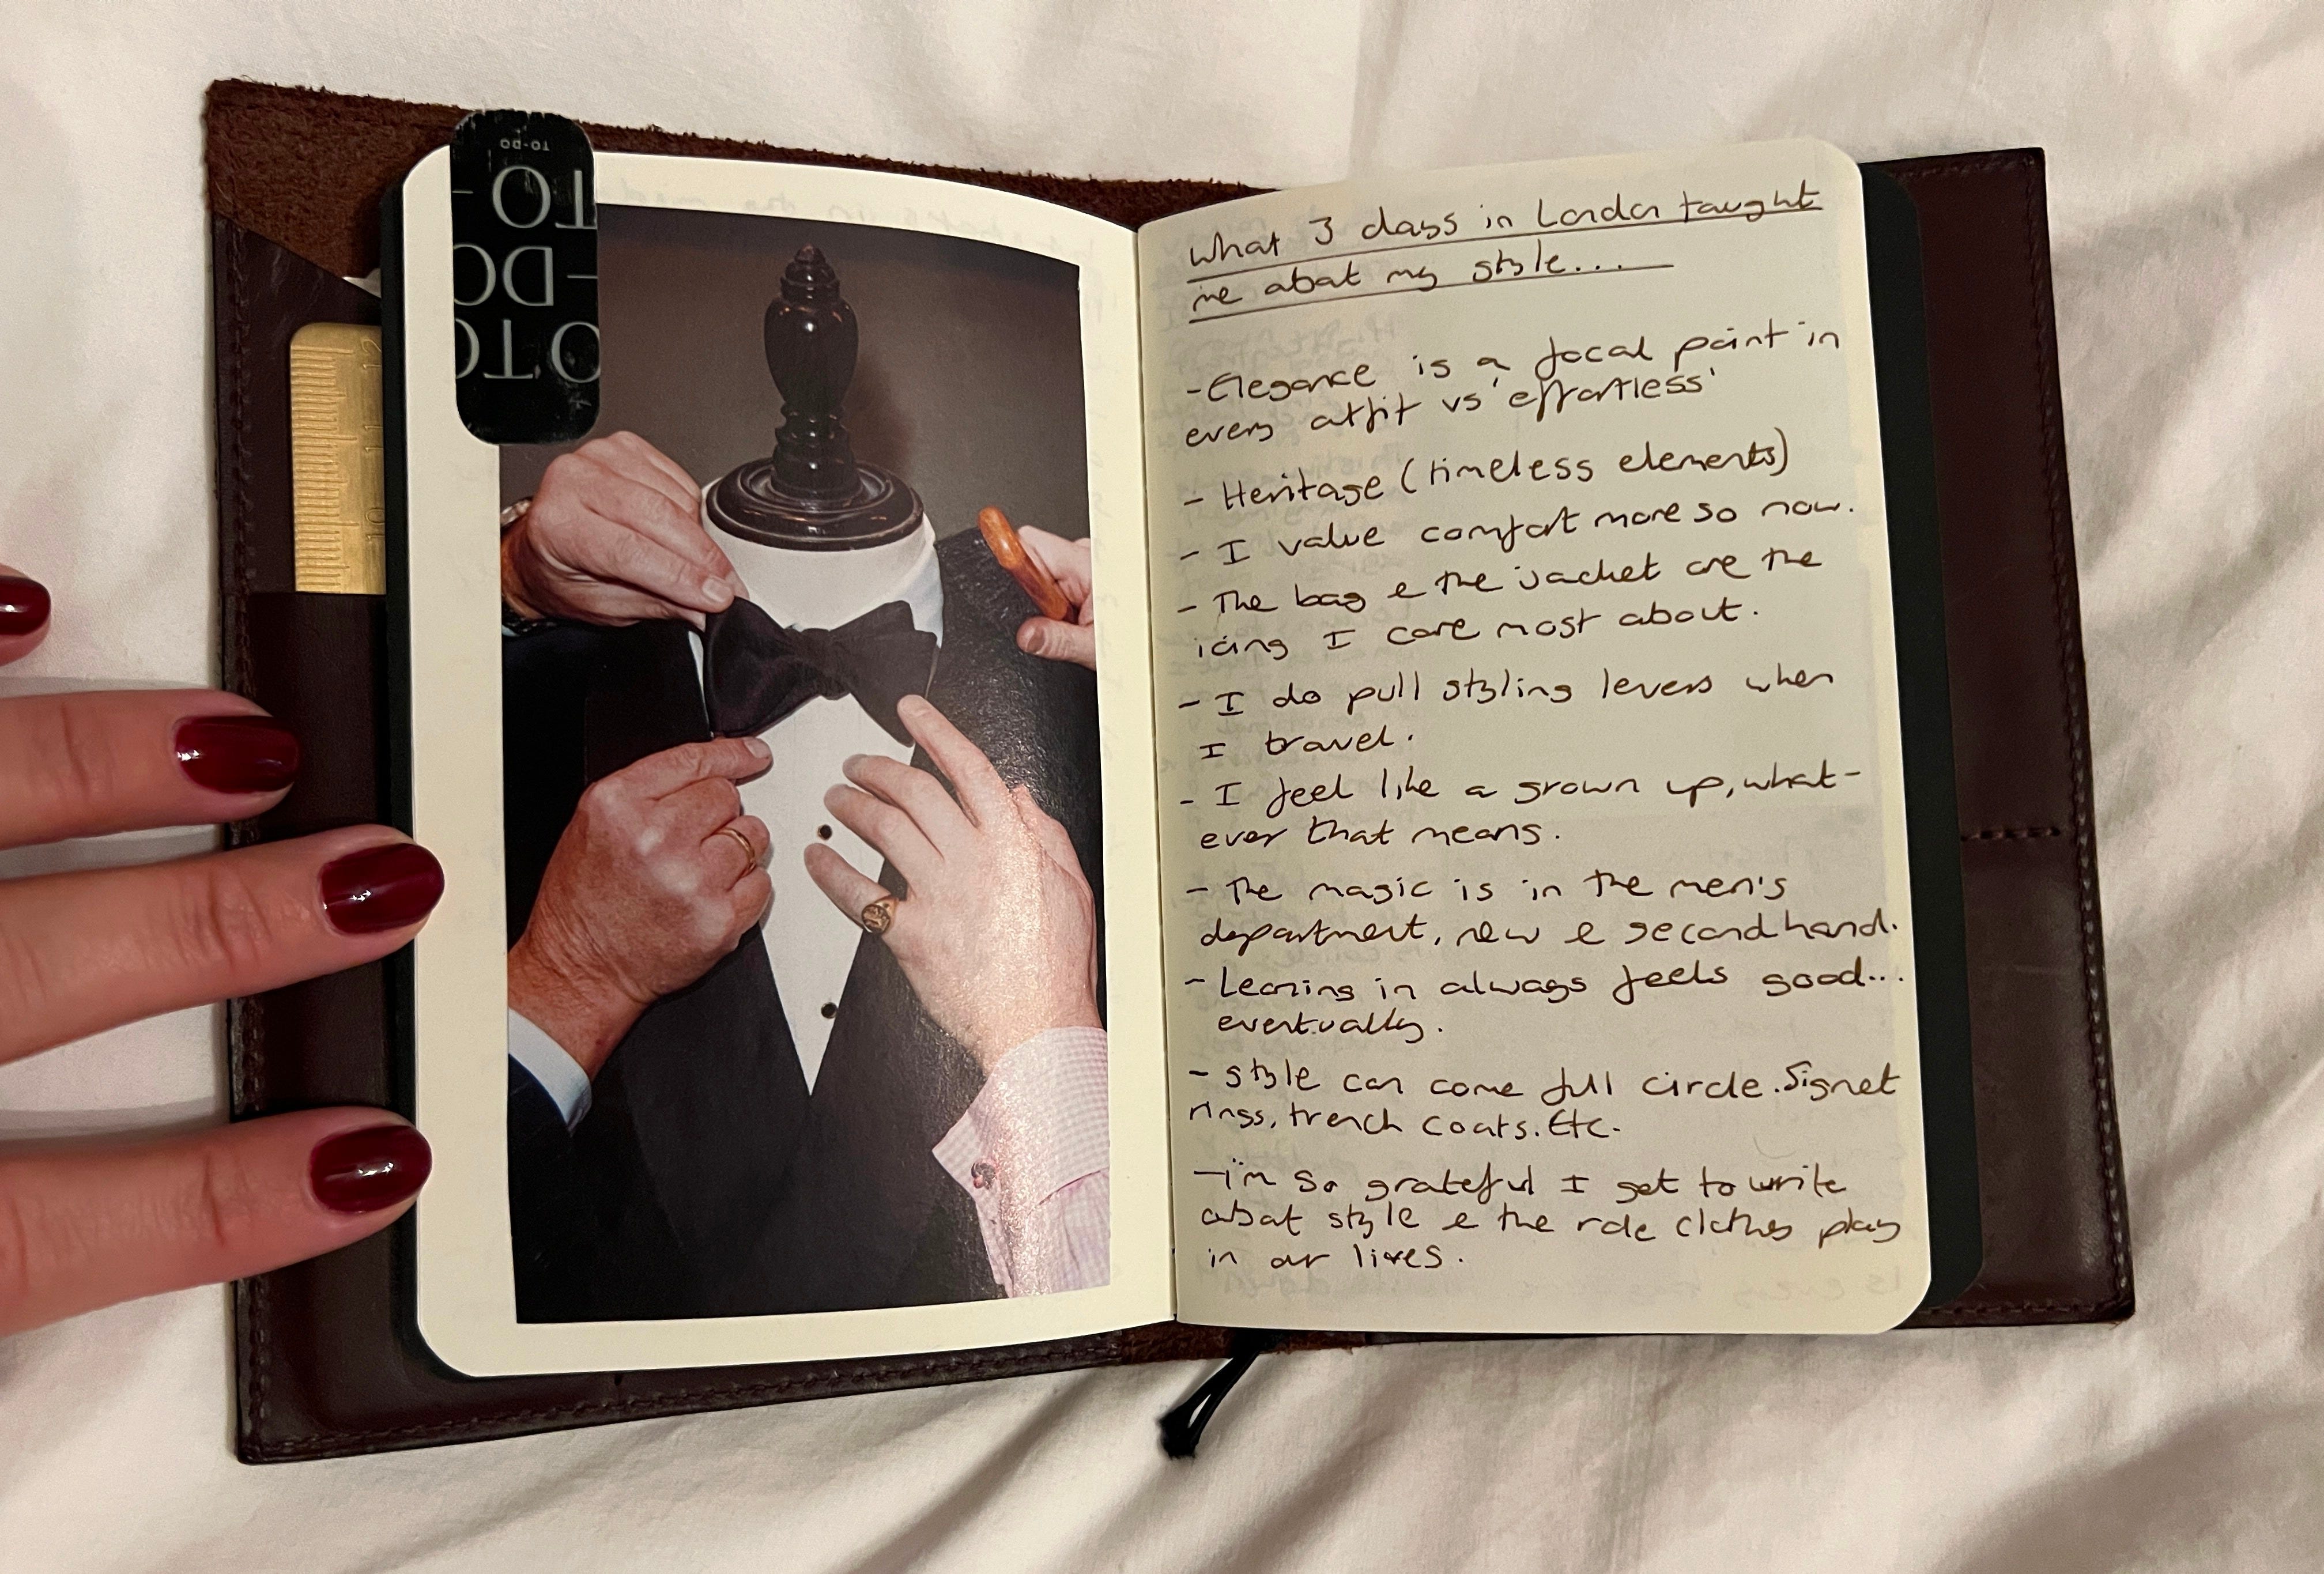 TO-DO
TO-
-DO
TOTO
12
11
10
What 3 days in London taught
me about my style...
-Elegance is a focal point in
every outfit vs 'effortless'
- Heritage (timeless elements)
- I value comfort more so now.
- The bag & the jacket are the
icing I care most about.
- I do pull styling levers when
I travel.
- I feel like a grown up, what-
ever that means.
- The magic is in the men's
department, new & secondhand.
- Leaning in always feels good...
eventually.
- style can come full circle. Signet
rings, trench coats. Etc.
- i'm so grateful I get to write
about style & the role clothes play
in our lives.